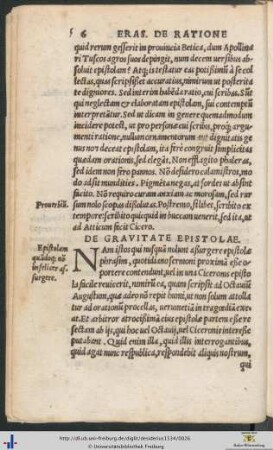 6 ERAS. DE RATIONE
quid rerum gesserit in prouincia Betica, dum Apollina
ri Tuscos agros suos depingit, num decem uersibus ab-
soluit epistolam? Atq; is testatur eas potissimũ à se col
lectas, quas scripsisset accuratius, nimirum ut posterita
te digniores. Sed interim habẽda ratio, cui scribas. Sunt
qui neglectam & elaboratam epistolam, sui contemptũ
interpretãtur. Sed ut dicam in genere quemadmodum
incidere potest, ut pro personæ cui scribis, proq; argu-
menti ratione, nullum ornamentorum aut dignitatis ge
nus non deceat epistolam, ita ferè congruit simplicitas
quædam orationis, sed elegãs. Non efflagito phaleras,
sed idem non fero pannos. Nõ desidero calamistros, mo
do absit mundities. Pigmẽta negat, at sordes ut absint
fuscitò. Nõ requiro curam anxiam ac morosam, sed rur
sum nolo scopas dissolutas. Postremo, si libet, scribito ex
tempore: scribito quicquid in buccam uenerit, sed ita, ut
ad Atticum solitus Cicero.
Prouerbiũ.
DE GRAVITATE EPISTOLAE.
Epistolam
quãdoq; nõ
insurgere.
NAm istos qui nusquã uolunt assurgere epistolã
priuatam, quotidiano sermoni proximã esse o-
portere contendunt, uel in una Ciceronis episto
la facile reuicerit, nimirũ ea, quam scripsit ad Octauiũ
Augustum, quæ adeo nõ repit humi, ut non solum attolla
tur ad orationũ procellas, uerumetiã in tragœdiã exe-
at. Et arbitror atrocissima eius epistolæ partem esse re
sectam ab ijs, qui hoc uel Octauij, uel Ciceroni interesse
putabant. Quid enim illa, quid illis interrogantibus,
quid agat nunc respublica, respondebit aliquis nostrum,
qui
http://dl.ub.uni-freiburg.de/diglit/desiderius1534/0026
© Universitätsbibliothek Freiburg